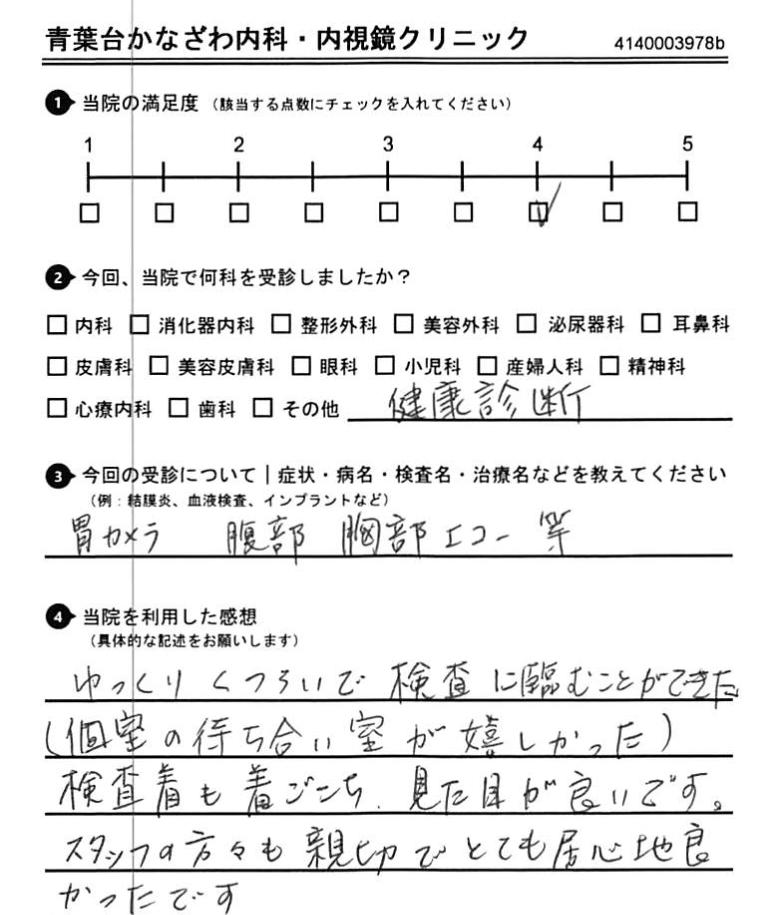 青葉台かなざわ内科・内視鏡クリニック 4140003978b
1 当院の満足度 (該当する点数にチェックを入れてください)
1 2 3 4 5
2 今回、当院で何科を受診しましたか？
内科 消化器内科 整形外科 美容外科 泌尿器科 耳鼻科
皮膚科 美容皮膚科 眼科 小児科 産婦人科 精神科
心療内科 歯科 その他 健康診断
3 今回の受診について | 症状・病名・検査名・治療名などを教えてください
(例：結膜炎、血液検査、インプラントなど)
胃カメラ 腹部 胸部エコー 等
4 当院を利用した感想
(具体的な記述をお願いします)
ゆっくりくつろいで 検査に臨むことができた
(個室の待ち合い室が嬉しかった)
検査着も着ごこち、見た目が良いです。
スタッフの方々も親切でとても居心地良
かったです